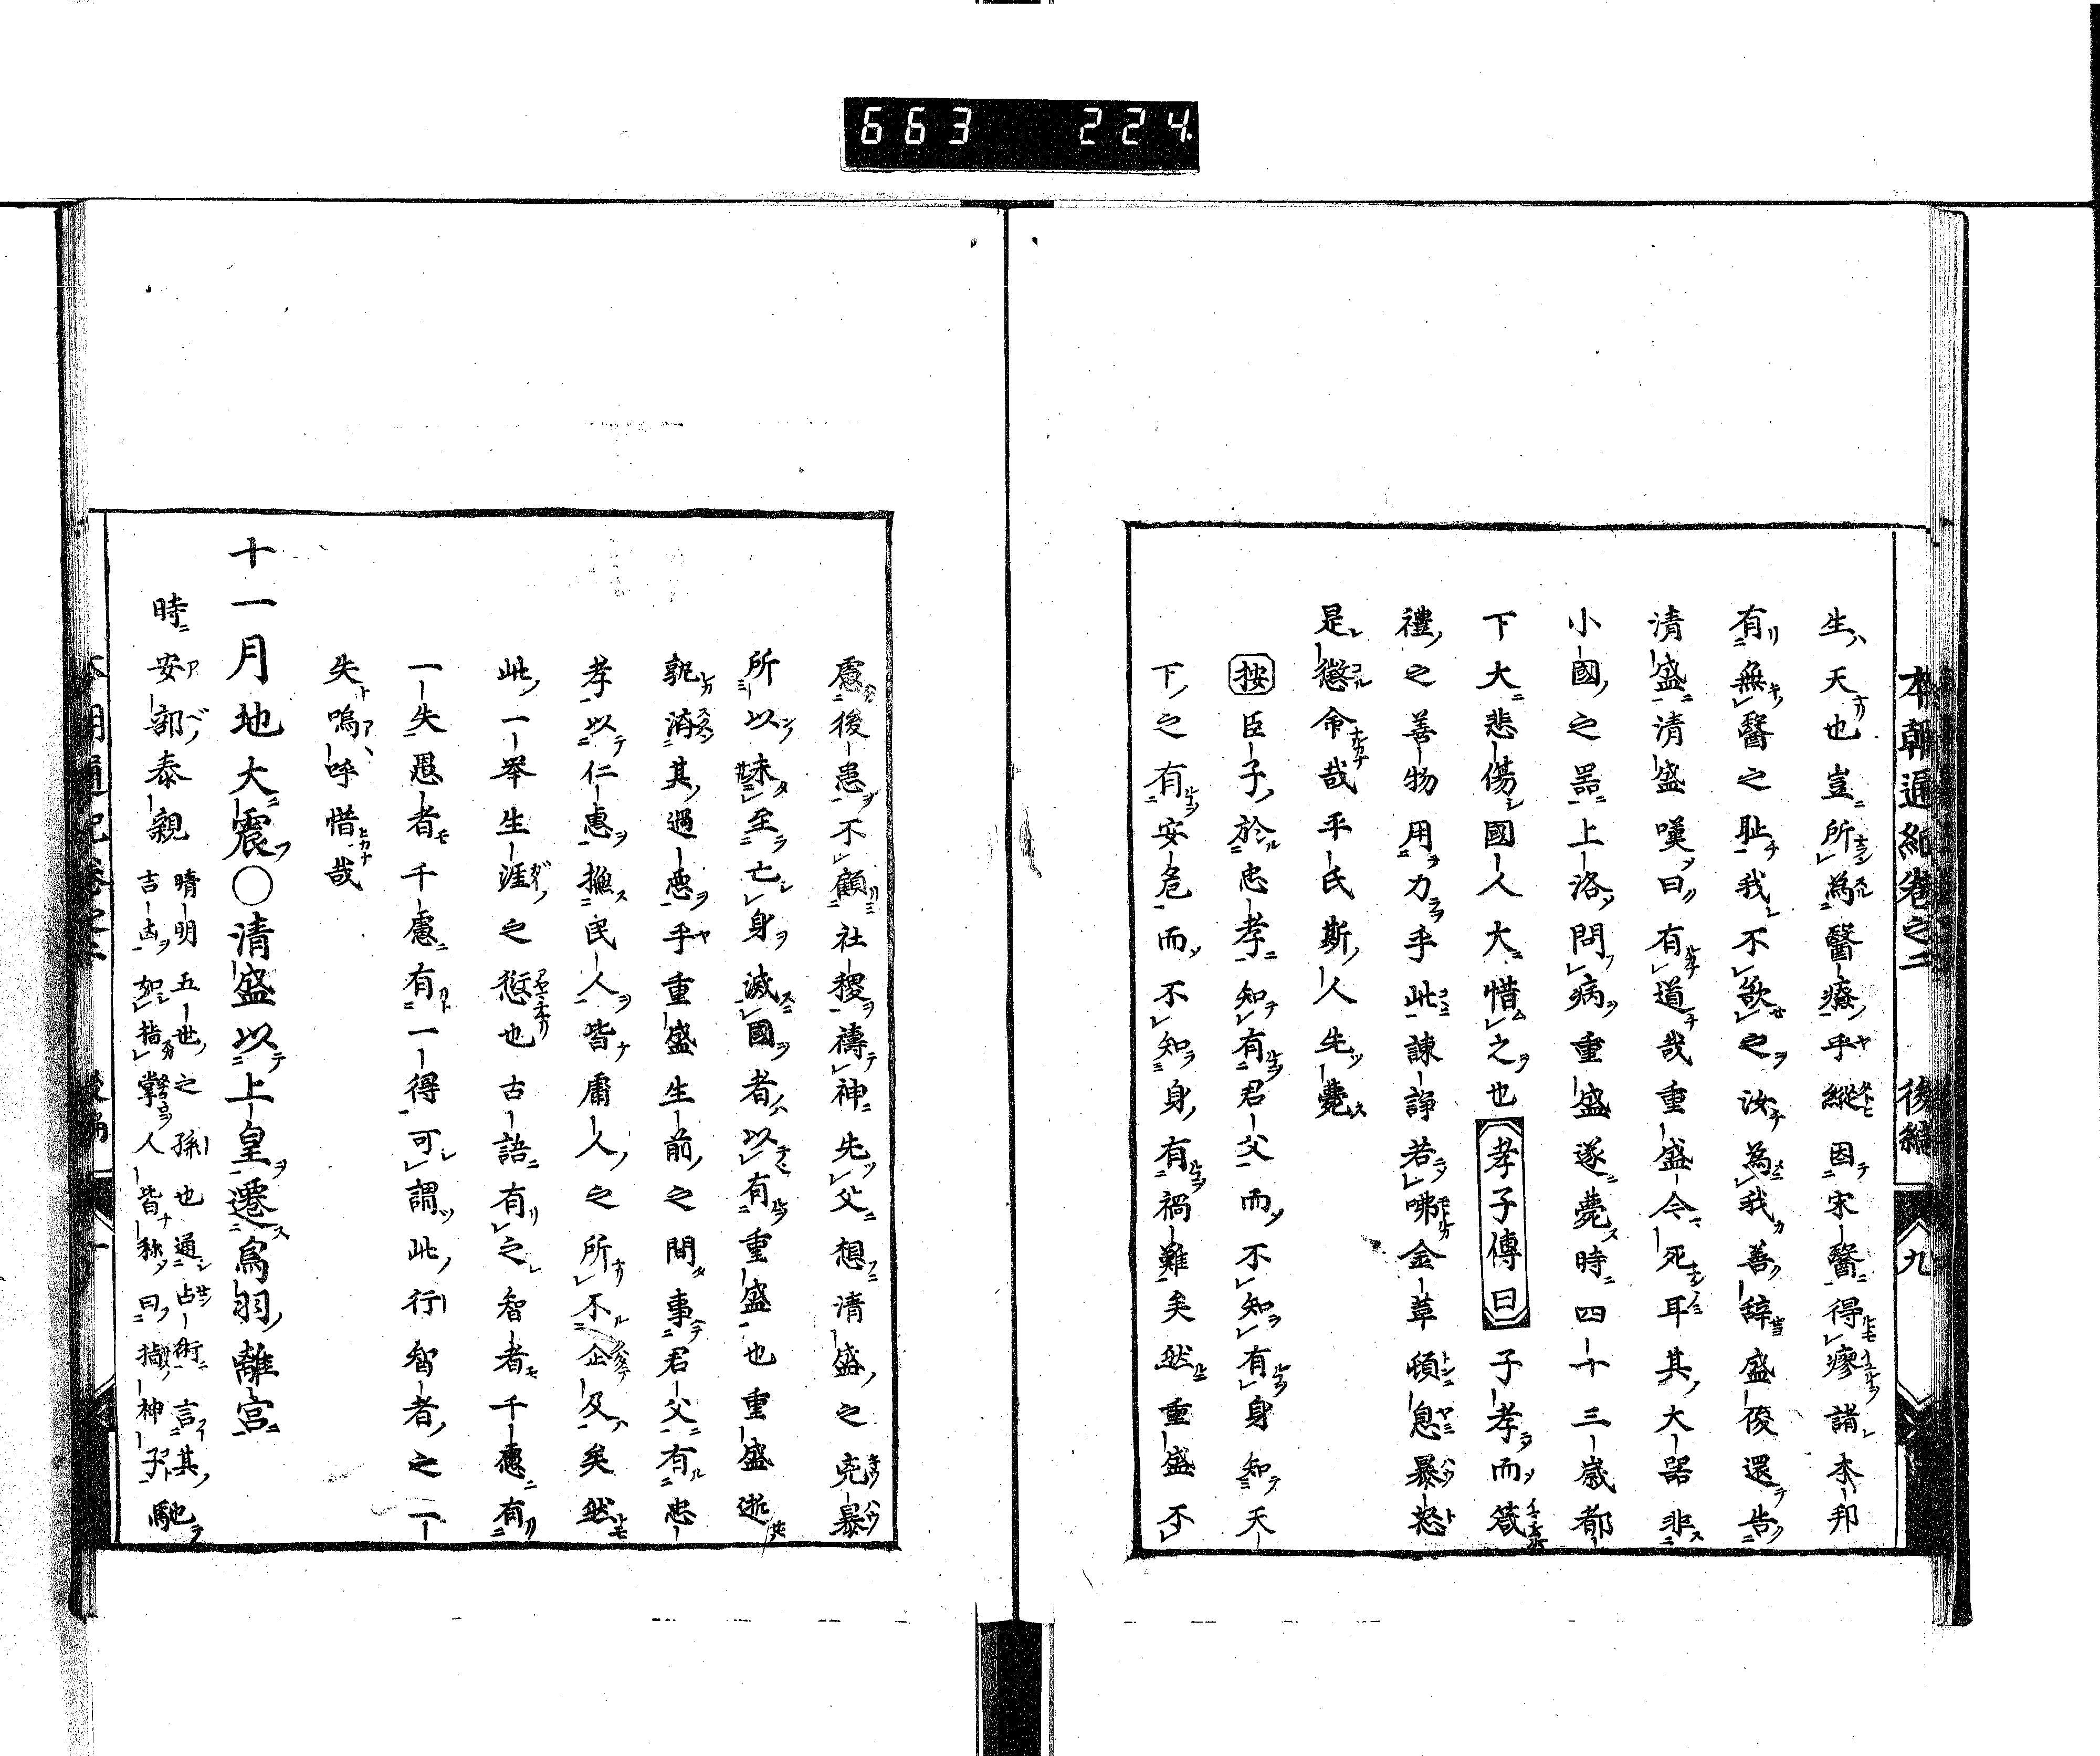 663 224
本朝通紀卷之二 後編 九
生天也豈所為醫療乎縱因宋醫得瘳諸本邦
有無醫之耻我不欲之汝為我善辞盛俊還告
清盛清盛嘆曰有道哉重盛今死耳其大器非
小國之器上洛問病重盛遂薨時四十三歲都
下大悲傷國人大惜之也孝子傳曰子孝而箴
禮之善物用力乎此諫諍若咈金革頓息暴怒
是懲命哉平氏斯人先薨
按臣子於忠孝知有君父而不知有身知天
下之有安危而不知身有禍難矣然重盛不
慮後患不顧社稷禱神先父想清盛之兇暴
所以未至亡身滅國者以有重盛也重盛逝
孰済其過惡乎重盛生前之間事君父有忠
孝以仁惠撫民人皆庸人之所不企及矣然
此一举生涯之愆也古語有之智者千慮有
一失愚者千慮有一得可謂此行智者之一
失嗚呼惜哉
十一月地大震○清盛以上皇遷鳥羽離宮
時安部泰親晴明五世之孫也通占術言其
吉凶如指掌人皆称曰指神子馳